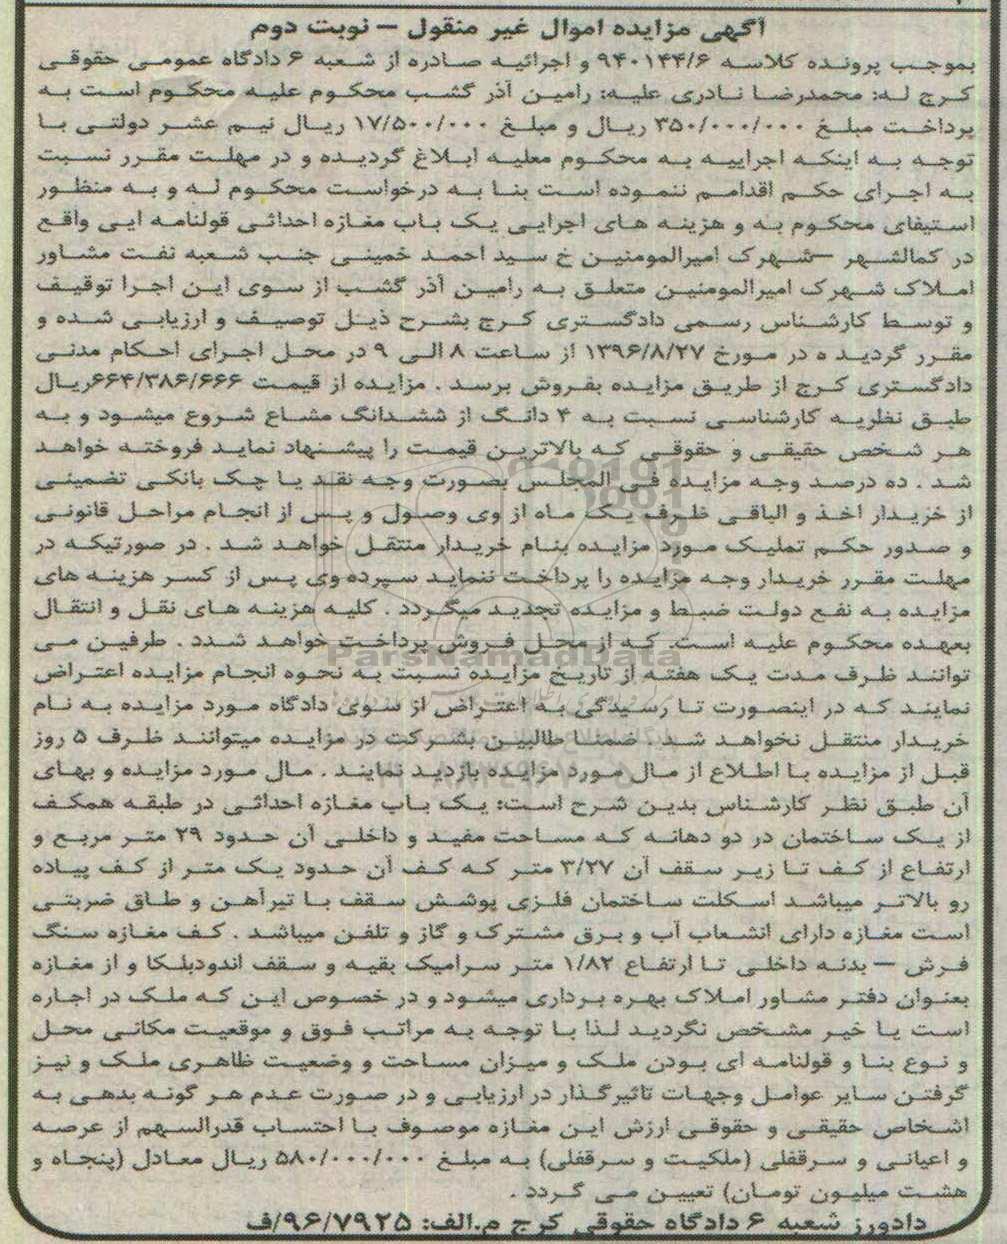 آگهی مزایده اموال غیر منقول – نوبت دوم
بموجب پرونده کلاسه ۹۴۰۱۴۴/۶ و اجرائیه صادره از شعبه ۶ دادگاه عمومی حقوقی
کرج له: محمدرضا نادری علیه: رامین آذر گشب محکوم علیه محکوم است به
پرداخت مبلغ ۳۵۰/۰۰۰/۰۰۰ ریال و مبلغ ۱۷/۵۰۰/۰۰۰ ریال نیم عشر دولتی با
توجه به اینکه اجراییه به محکوم معلیه ابلاغ گردیده و در مهلت مقرر نسبت
به اجرای حکم اقدامم ننموده است بنا به درخواست محکوم له و به منظور
استیفای محکوم به و هزینه های اجرایی یک باب مغازه احداثی قولنامه ایی واقع
در کمالشهر –شهرک امیرالمومنین خ سید احمد خمینی جنب شعبه نفت مشاور
املاک شهرک امیرالمومنین متعلق به رامین آذر گشب از سوی این اجرا توقیف
و توسط کارشناس رسمی دادگستری کرج بشرح ذیل توصیف و ارزیابی شده و
مقرر گردید ه در مورخ ۱۳۹۶/۸/۲۷ از ساعت ۸ الی ۹ در محل اجرای احکام مدنی
دادگستری کرج از طریق مزایده بفروش برسد . مزایده از قیمت ۶۶۴/۳۸۶/۶۶۶ریال
طبق نظریه کارشناسی نسبت به ۴ دانگ از ششدانگ مشاع شروع میشود و به
هر شخص حقیقی و حقوقی که بالاترین قیمت را پیشنهاد نماید فروخته خواهد
شد . ده درصد وجه مزایده فی المجلس بصورت وجه نقد یا چک بانکی تضمینی
از خریدار اخذ و الباقی ظرف یک ماه از وی وصول و پس از انجام مراحل قانونی
و صدور حکم تملیک مورد مزایده بنام خریدار منتقل خواهد شد . در صورتیکه در
مهلت مقرر خریدار وجه مزایده را پرداخت ننماید سپرده وی پس از کسر هزینه های
مزایده به نفع دولت ضبط و مزایده تجدید میگردد . کلیه هزینه های نقل و انتقال
بعهده محکوم علیه است که از محل فروش پرداخت خواهد شدد . طرفین می
توانند ظرف مدت یک هفته از تاریخ مزایده نسبت به نحوه انجام مزایده اعتراض
نمایند که در اینصورت تا رسیدگی به اعتراض از سوی دادگاه مورد مزایده به نام
خریدار منتقل نخواهد شد . ضمنا طالبین بشرکت در مزایده میتوانند ظرف ۵ روز
قبل از مزایده با اطلاع از مال مورد مزایده بازدید نمایند . مال مورد مزایده و بهای
آن طبق نظر کارشناس بدین شرح است: یک باب مغازه احداثی در طبقه همکف
از یک ساختمان در دو دهانه که مساحت مفید و داخلی آن حدود ۲۹ متر مربع و
ارتفاع از کف تا زیر سقف آن ۳/۲۷ متر که کف آن حدود یک متر از کف پیاده
رو بالاتر میباشد اسکلت ساختمان فلزی پوشش سقف با تیرآهن و طاق ضربتی
است مغازه دارای انشعاب آب و برق مشترک و گاز و تلفن میباشد . کف مغازه سنگ
فرش – بدنه داخلی تا ارتفاع ۱/۸۲ متر سرامیک بقیه و سقف اندودبلکا و از مغازه
بعنوان دفتر مشاور املاک بهره برداری میشود و در خصوص این که ملک در اجاره
است یا خیر مشخص نگردید لذا با توجه به مراتب فوق و موقعیت مکانی محل
و نوع بنا و قولنامه ای بودن ملک و میزان مساحت و وضعیت ظاهری ملک و نیز
گرفتن سایر عوامل وجهات تاثیرگذار در ارزیابی و در صورت عدم هر گونه بدهی به
اشخاص حقیقی و حقوقی ارزش این مغازه موصوف با احتساب قدرالسهم از عرصه
و اعیانی و سرقفلی (ملکیت و سرقفلی) به مبلغ ۵۸۰/۰۰۰/۰۰۰ ریال معادل (پنجاه و
هشت میلیون تومان) تعیین می گردد .
دادورز شعبه ۶ دادگاه حقوقی کرج م.الف: ۹۶/۷۹۲۵/ف
ParsNamadData